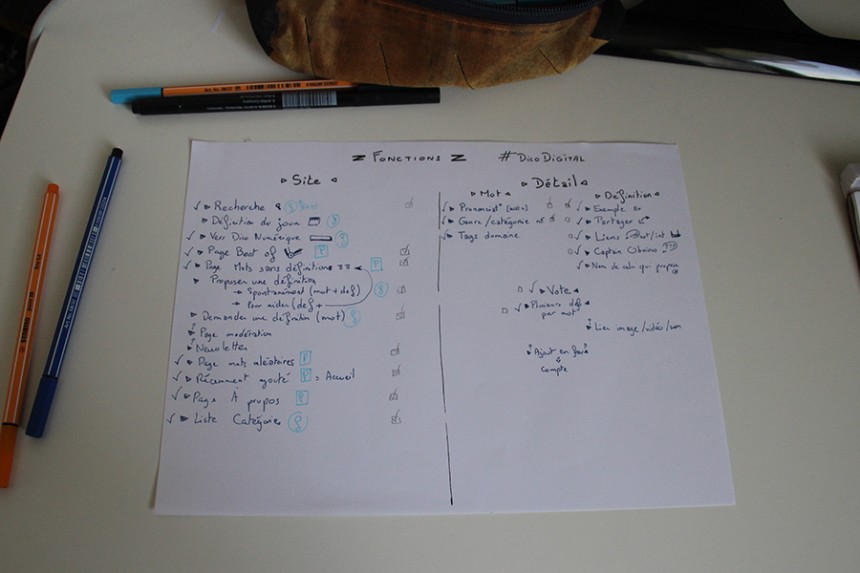 Fonctions #DicoDigital
Site
Recherche
Définition du jour
Vers Dico Numérique
Page Best of P
Page Mots sans définitions P
Proposer une définition
Spontanément (mot + def)
Pour aider (def +
Demander une définition (mot)
Page modération
Newsletter
Page mots aléatoires P
Récemment ajouté P = Accueil
Page À propos P
Liste Catégorie
Détail
Mot
Genre/catégorie
Tags domaine
Définition
Exemple
Partager
Liens
Captain Obvious
Nom de celui qui propose
Vote
Plusieurs def
par mot
Lien image/vidéo/son
Ajout en favs
compte